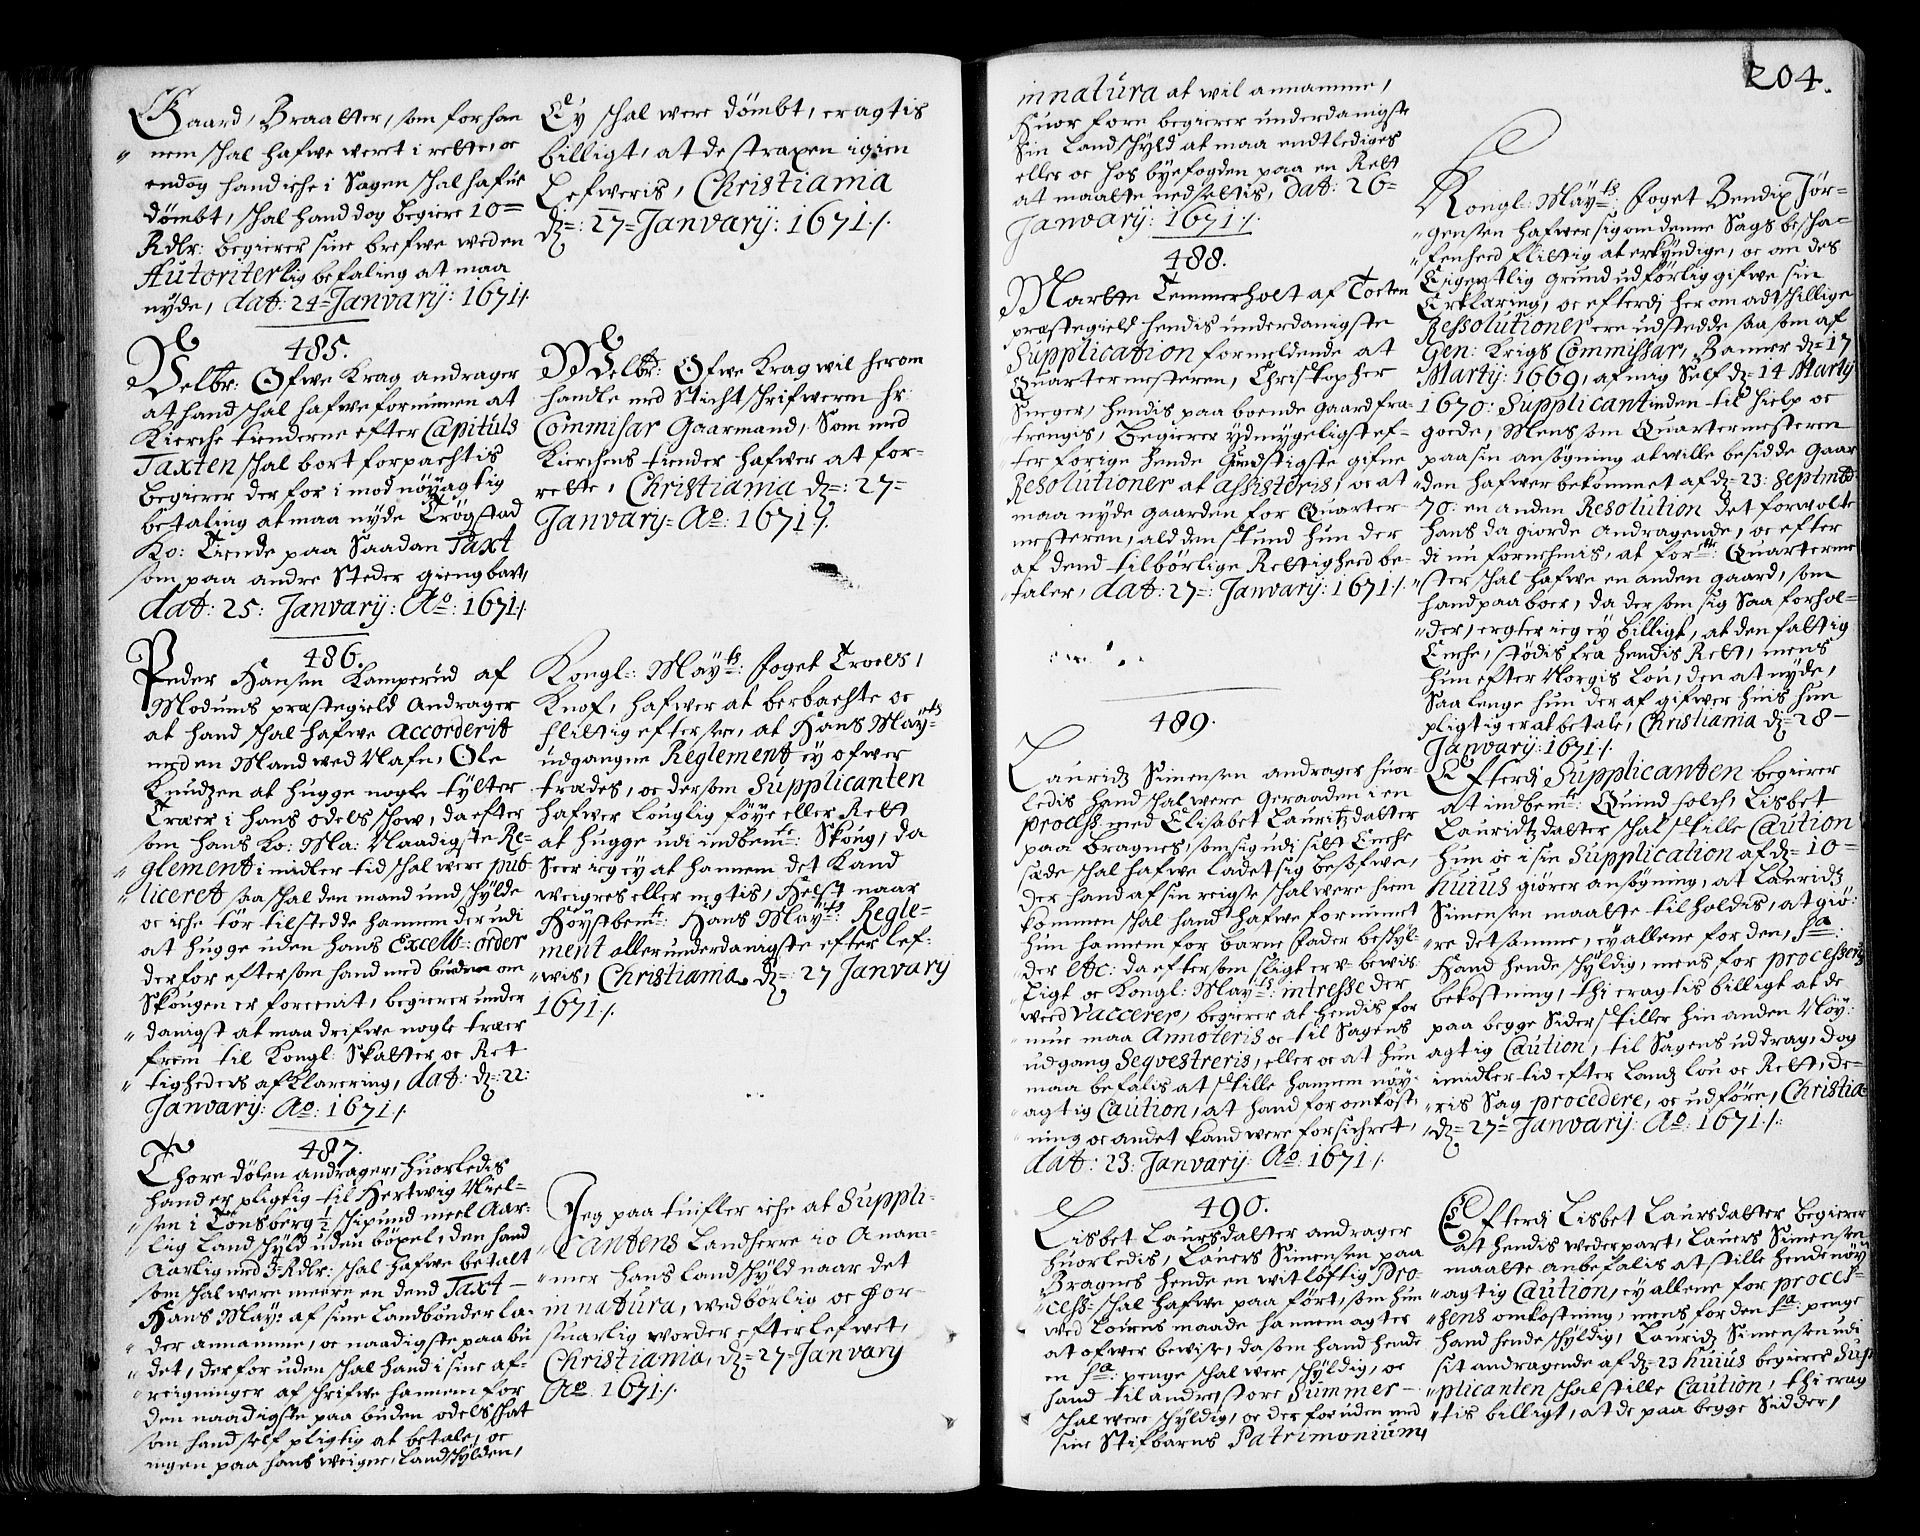 Gaard, Braatter, som for han
nem schal hafwe weret i rette, oc
endog hand iche i Sagen schal hafue
dömbt, schal hand dog begiere 10=
Rdlr: begierer sine brefwe weden
Autoriterlig befaling at maa
nyde, dat: 24= Janvarij: 1671 ⁒
485.
Welbr: Ofwe Krag andrager
at hand schal hafwe fornumen at
Kierche tienderne efter Capituls
Taxten schal bort forpachtis
begierer der for i mod nöyagtig
betaling at maa nyde Trögstad
Ko: Tiende paa Saadan Taxt
som paa andre Steder giengbart,
dat: 25: Janvarij: Ao: 1671 ⁒
486.
Peder Hansen Kamperud af
Modums præstegield Andrager
at hand schal hafwe accorderit
med en Mand wed Nafn, Ole
Knudzen at hugge nogle tylter
Træer i hans odels schow, da efter
som hans Ko: Ma: Naadigste Re=
glement i midler tid schal were pub=
liceret saa schal den mand und schylde
oc iche tör tilstedde hannem der udi
at hugge uden hans Excell: order
der for eftersom hand med buden om
Skougen er foreenit, begierer under
danigst at maa drifwe nogle træer
frem til Kongl: Skatter oc Ret
tigheders afklarering, dat: dz: 22:
Janvarij: Ao: 1671 ⁒
487.
Thore dölen andrager, huorledis
hand er pligtig til Hertwig Niel=
sen i Tönsberg ½ schipund meel Aar:
lig Landschyld uden böxel, den hand
Aarlig med 3 Rdlr: schal hafwe betalt
som schal were meere en dend Taxt
Hans Mayt: af sine Landbönder la=
der annamme, oc naadigste paabu
det, der foruden schal hand i sine af=
reigninger af schrifwe hannem for
den naadigste paa buden odelsschat
som hand self pligtig at betale, oc
ingen paa hans weigne, Landschylden,
Ey schal were dömbt, eragtis
billigt, at de straxen igien
Lefweris, Christiania
dz=: 27= Janvarij: 1671 ⁒
Welbr: Ofwe Krag wil herom
handle med Sticht schrifweren hr:
Commisar Gaarmand, Som med
Kirchens tiender hafwer at for=
rette, Christiania dz=: 27=
Janvarij= Ao: 1671 ⁒
Kongl: Mayts: foget Troels,
Knof, hafwer at berbachte oc
flittig efter see, at Hans Mayts
udgangne Reglement ey ofwer
trædes, oc dersom Supplicanten
hafwer Louglig föye eller Rett
at hugge udi indbemte: Skoug, da
Seer ieg ey at hannem det kand
weigres eller negtis, Helst naar
Höystbemte: Hans Mayts: Regle=
ment allerunderdanigste efter lef=
wis, Christiania dz=: 27 Janvary
1671 ⁒
Jeg paa tuifler iche at Suppli=
cantens Landherre io Anam=
mer hans Landschyld naar det
in natura, wedbörlig oc for=
suarlig worder efterlefwet,
Christiania, dz= 27= Janvary
Ao. 1671 ⁒
204.
in natura at wil annamme,
huor fore begierer underdanigste
Sin Landschyld at maa endtlediges
eller oc hos byefogden paa en Rett
at maatte nedsettis, dat: 26=
Janvarij: 1671 ⁒
488.
Marte Temmerholt af Toeten
præstegield hendis underdanigste
Supplication formeldende at
Quartermesteren, Christopher
Singer, hendis paa boende gaard fra
trengis, Begierer ydmygeligst ef=
ter forige hende Gundstigste gifne
Resolutioner at assisteris, oc at
maa nyde gaarden for Quarter
mesteren, ald den stund hun der
af dend tilbörlige Rettighed be=
taler, dat: 27=: Janvarij: 1671 ⁒
489.
Lauridz Simensen andrager huor
ledis hand schal were Geraaden i en
process med Elisabet Lauritzdatter
paa Bragnes, som sig udi sitt Enche
sæde schal hafwe ladet sig besofwe,
der hand af sin reigse schal were hiem
kommen schal hand hafwe fornummet
hun hannem for barne fader beschyl=
der etc: da eftersom sligt er u=bewis
ligt oc Kongl: Mayts: intresse der
weed vaccerer, begierer at hendis for
mue maa Annoteris oc til Sagens
udgang Seqvestreris, eller oc at hun
maa befalis at stille hannem nöy=
agtig Caution, at hand for omkost=
ning oc andet kand were forsichret,
dat: 23: Janvarij: Ao: 1671 ⁒
490.
Lisbet Laursdatter andrager
huorledis, Laurs Simensen paa
Bragnes hende en witlöftig Pro=
cess schal hafwe paa fört, som hun
wed Lowens maade hannem agter
at ofwer bewise, da som hand hende
en Sa: penge schal wer schyldig, oc
hand til andre store Summer
schal were schyldig, oc der foruden med
sine Stifbarns Patrimonium,
Kongl: Mayts: foget Bendix Jör=
gensen hafwer sig om denne Sags bescha=
fenhed flittig at erkyndige, oc om des
Eigentlig grund udförlig gifwe sin
Erklæring, oc efterdj her om adschillige
Ressolutioner ere udstedde saa som af
Gen: Krigs Commissar, Banner dz= 17
Martij: 1669, af mig Self dz= 14 Martij
1670: Supplicantinden til hielp oc
goede, Mens som Quartermesteren
paa sin ansögning at wille besidde Gaar
den hafwer bekommet af dz= 23: Septmb
70: en anden Resolution det forwolte
hans da giorde Andragende, oc efter
di nu fornehmis, at forne: Quarterme
ster schal hafwe en anden gaard, som
hand paa boer, da dersom sig Saa forhol=
der, ergter ieg ey billigt, at den fattig
Enche, stödis fra hendis Rett, mens
hun efter Norgis Lou, den at nyde,
Saa lenge hun der af gifwer huis hun
pligtig er at betale, Christiania dz= 28
Janvarij: 1671 ⁒
Efterdi Supplicanten begierer
at indbemte: Quindfolch, Lisbet
Lauridtzdatter schal stille Caution
hun oc i sin Supplication af dz= 10=
huius giörer ansögning, at Lauridz
Simensen maatte tilholdis, at giö=
re det samme, ey allene for den, Sa:
Hand hende schyldig, mens for processens
bekostning, thi eragtis billigt at de
paa begge Sider stiller hin anden Nöy=
agtig Caution, til Sagens uddrag, dog
imidler tid efter Landz lou oc Rett, de=
ris Sag procedere, oc udföre, Christia=
dz= 27= Janvarij Ao: 1671 ⁒
Efterdi Lisbet Laursdatter begierer
at hendis wederpart, Laurs Simensen
maatte anbefalis at stille hende nöy
agtig Caution, ey allene for proces=
sens omkostning, mens for den Sa: penge
hand hende schyldig, Lauridz Simensen udi
sit andragende af dz= 23 huius begierer Sup
plicanten schal stille Caution, thi erag
tis billigt, at de paa begge Sidder,